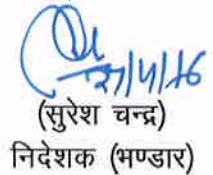 27/4/16
(सुरेश चन्द्र)
निदेशक (भण्डार)